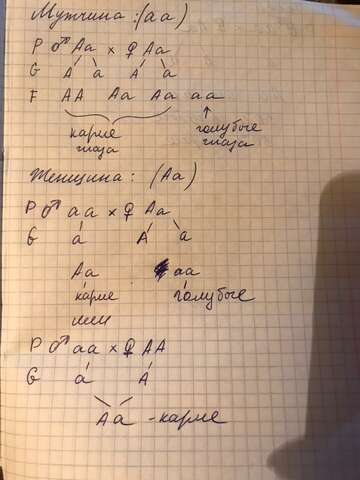 Мужчина: (аа)
P ♂ Аа × ♀ Аа
G А а А а
F АА Аа Аа аа
карие глаза
голубые глаза
Женщина: (Аа)
P ♂ аа × ♀ Аа
G а А а
Аа аа
карие голубые
или
P ♂ аа × ♀ АА
G а А
Аа - карие